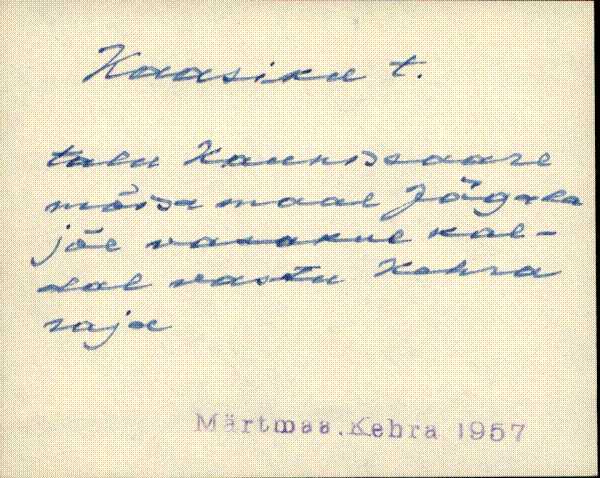 Kaasiku t.
talu Kaunissaare
mõisa maal Jõgala
jõe vasakul kal-
dal vastu Kehra
raja
Märtmaa.Kehra 1957